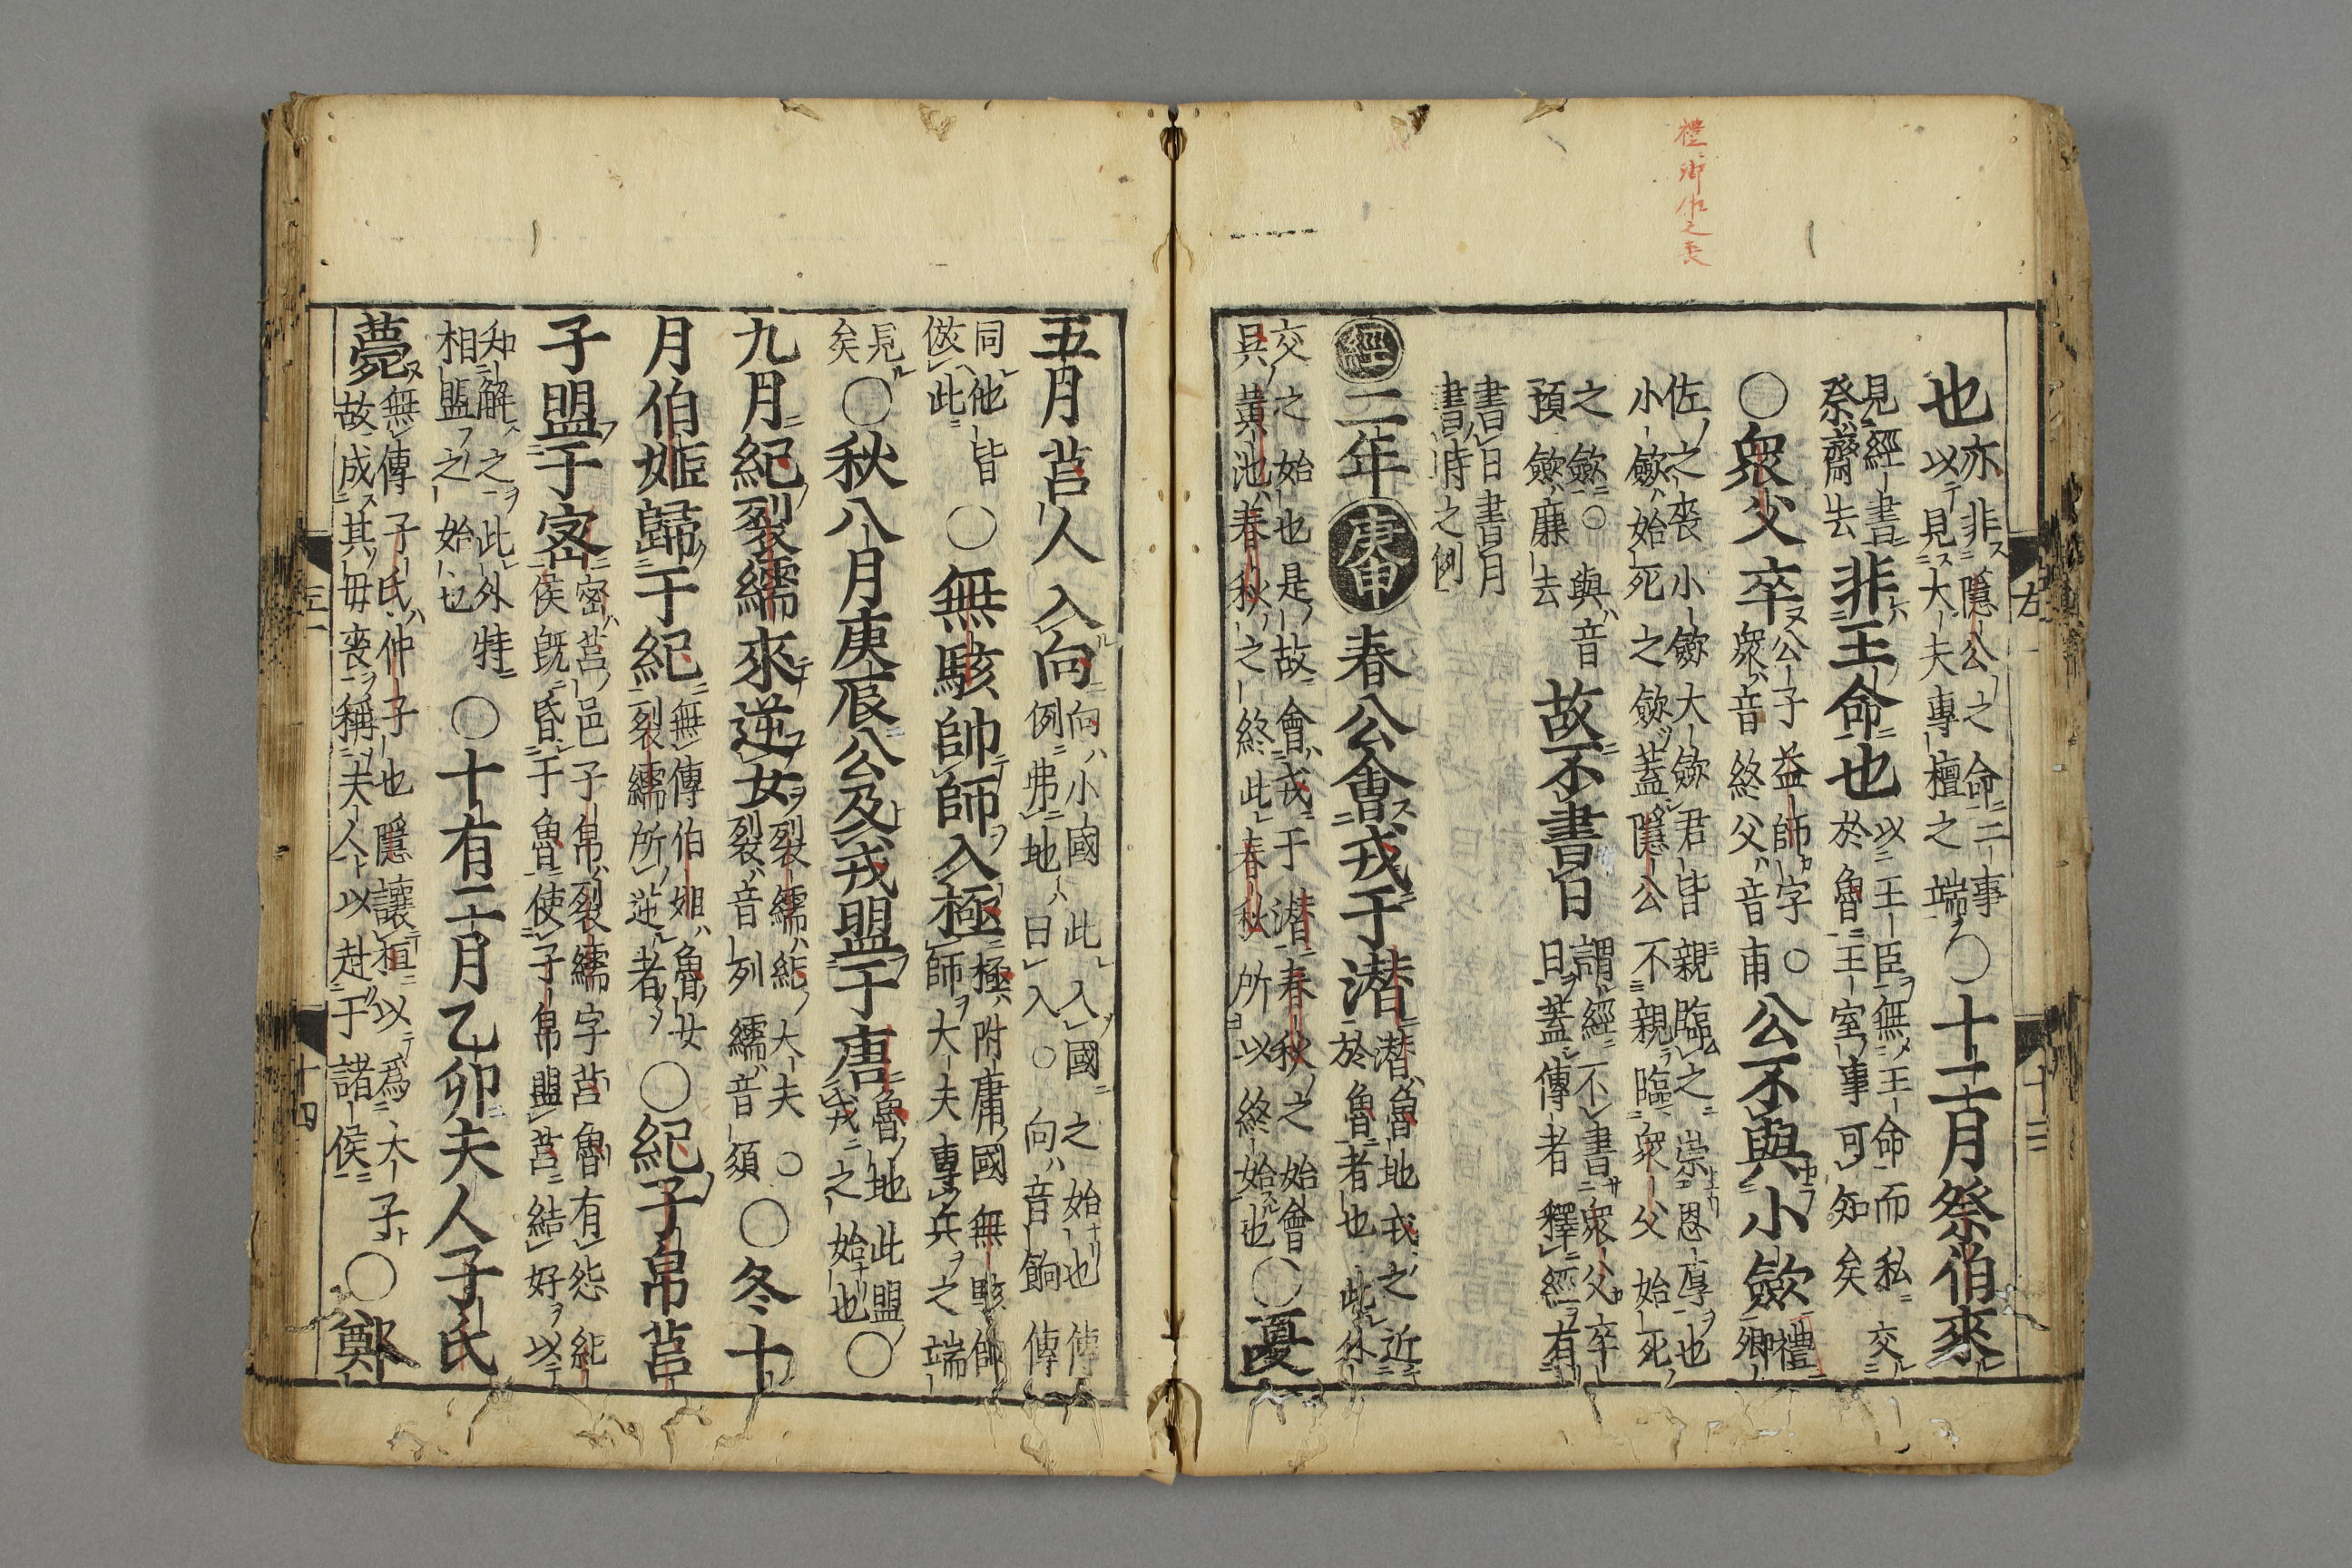 禮卿佐之喪
也亦非隱公之命二事以見大夫專檀之端○十二月祭伯來
見經書祭齋去非王命也以王臣無王命而私交於魯王室事可知矣
○衆父卒公子益師字○衆音終父音甫公不與小斂禮卿
佐之喪小斂大斂君皆親臨之崇恩厚也小斂始死之斂蓋隱公不親臨衆父始死
之斂○與音預斂廉去故不書日謂經不書衆父卒日蓋傳者釋經有
書日書月書時之例
經二年庚申春公會戎于潜潜魯地戎之近於魯者也此外
交之始也是故會戎于潜春秋之始會吳黄池春秋之終此春秋所以終始也○夏
五月莒人入向向小國此入國之始也傳例弗地曰入○向音餉傳
同他皆倣此○無駭帥師入極極附庸國無駭帥師大夫專兵之端
見矣○秋八月庚辰公及戎盟于唐魯地此盟戎之始也○
九月紀裂繻來逆女裂繻紀大夫○裂音列繻音須○冬十
月伯姬歸于紀無傳伯姬魯女裂繻所逆者○紀子帛莒
子盟于密密莒邑子帛裂繻字莒魯有怨紀侯旣昏于魯使子帛盟莒結好以
和解之此外特相盟之始也○十有二月乙卯夫人子氏
薨無傳子氏仲子也隱讓桓以爲太子故成其母喪稱夫人以赴于諸侯○鄭
十三
十四